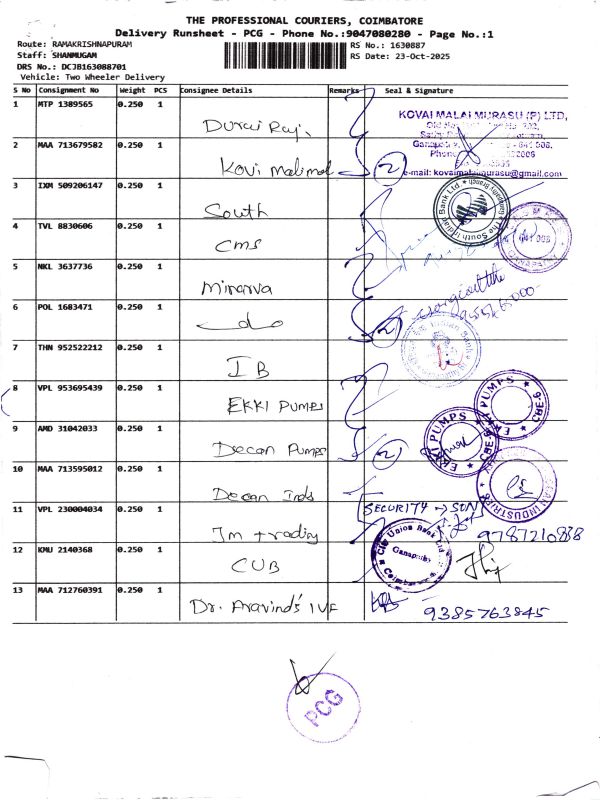 THE PROFESSIONAL COURIERS, COIMBATORE
Delivery Runsheet - PCG - Phone No.:9047080280 - Page No.:1
Route: RAMAKRISHNAPURAM
RS No.: 1630887
Staff: SHANMUGAM
RS Date: 23-Oct-2025
DRS No.: DCJB163088701
Vehicle: Two Wheeler Delivery
S No Consignment No Weight PCS Consignee Details Remarks Seal & Signature
1 MTP 1389565 0.250 1 Durai Raj,
KOVAI MALAI MURASU (P) LTD,
2 MAA 713679582 0.250 1 Kovi Malimal 2
e-mail: kovaimalaimurasu@gmail.com
3 IXM 509206147 0.250 1 South
The South Indian Bank Ltd
4 TVL 8830606 0.250 1 CMS
GANAPATHY
5 NKL 3637736 0.250 1 Minarva
6 POL 1683471 0.250 1 do 2
7 THN 952522212 0.250 1 IB
8 VPL 953695439 0.250 1 EKKI PUMPS
EKKI PUMPS CBE-6
9 AMD 31042033 0.250 1 Decan Pumps 2
EKKI PUMPS CBE-6
10 MAA 713595012 0.250 1 Decan Inds
11 VPL 230004034 0.250 1 Jm trading
SECURITY → SUN
9787210838
12 KMU 2140368 0.250 1 CUB
City Union Bank Ltd
Ganapathy
Coimbatore
13 MAA 712760391 0.250 1 Dr. Aravind's IVF 9385763845
PCG